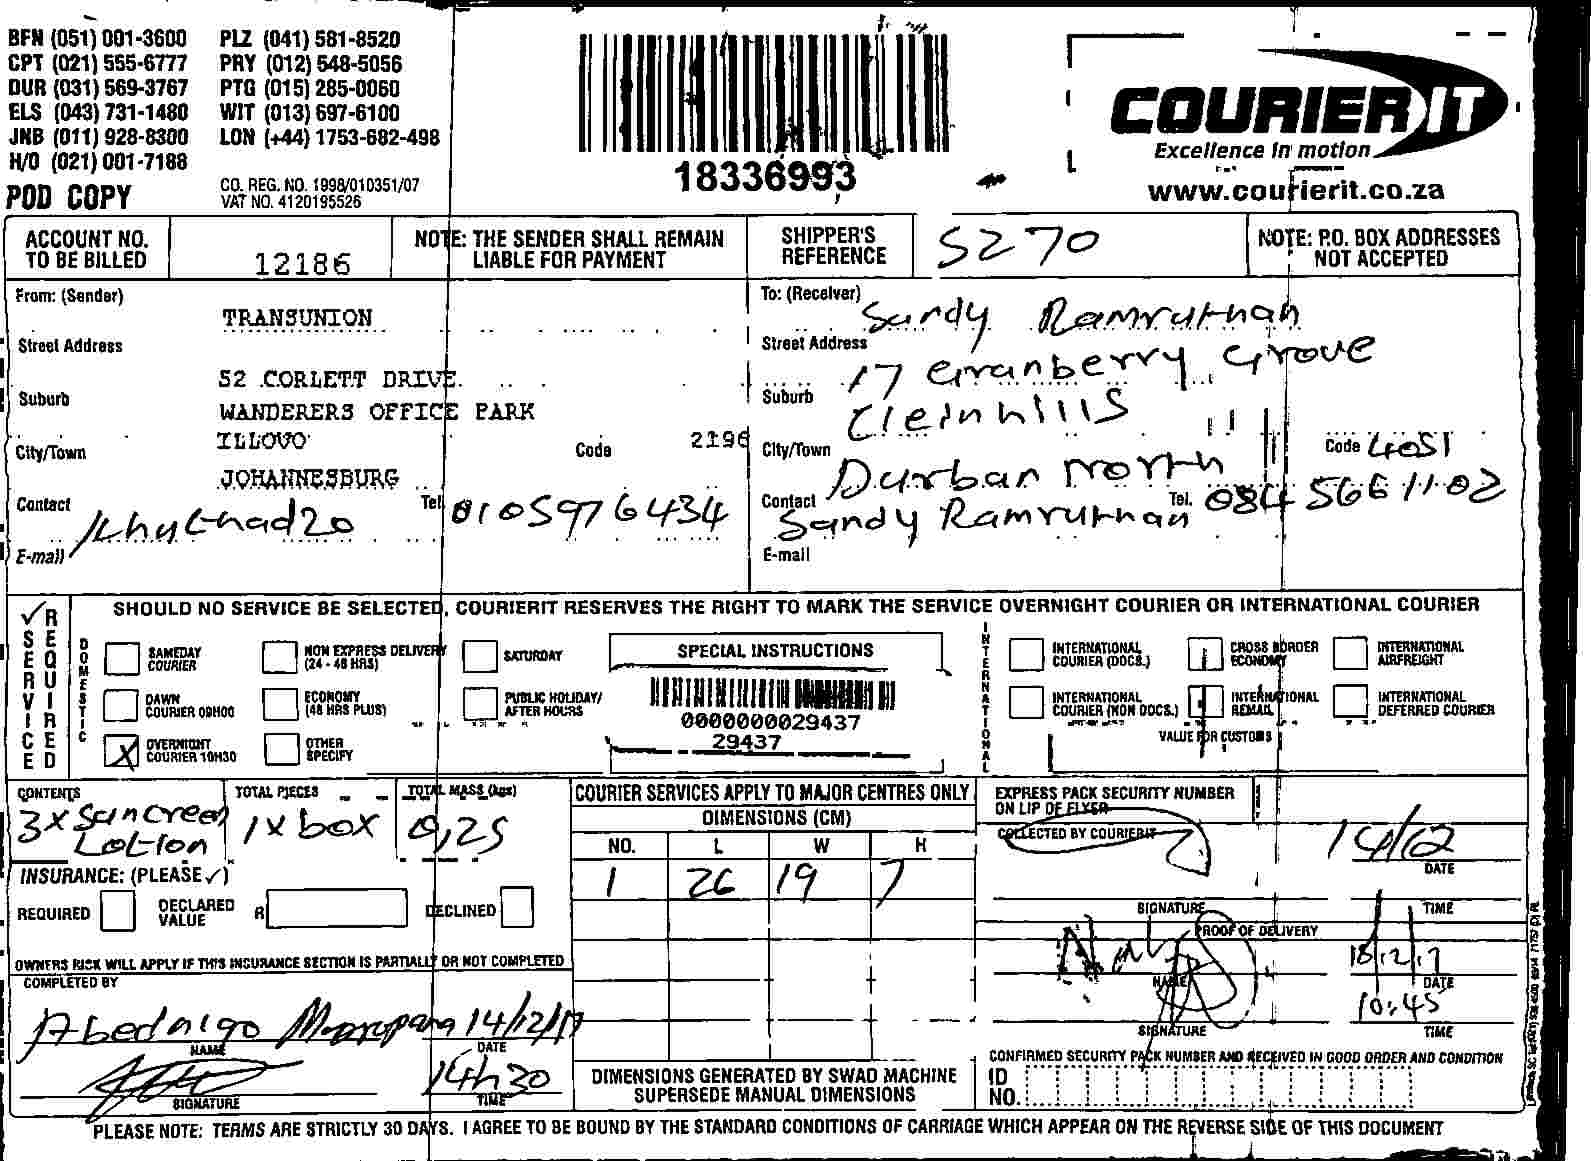 BFN (051) 001-3600 PLZ (041) 581-8520
CPT (021) 555-6777 PRY (012) 548-5056
DUR (031) 569-3767 PTG (015) 285-0060
ELS (043) 731-1480 WIT (013) 697-6100
JNB (011) 928-8300 LON (+44) 1753-682-498
H/O (021) 001-7188
POD COPY
CO. REG. NO. 1998/010351/07
VAT NO. 4120195526
18336993
COURIER IT
Excellence in motion
www.courierit.co.za
ACCOUNT NO. TO BE BILLED
12186
NOTE: THE SENDER SHALL REMAIN LIABLE FOR PAYMENT
SHIPPER'S REFERENCE
S270
NOTE: P.O. BOX ADDRESSES NOT ACCEPTED
From: (Sender)
TRANSUNION
Street Address
52 CORLETT DRIVE
Suburb
WANDERERS OFFICE PARK
ILLOVO
City/Town
Code 2196
JOHANNESBURG
Contact
Tel. 0105976434
E-mail
To: (Receiver)
Sandy Ramruthan
Street Address
17 Granberry Grove
Suburb
Cleinhills
City/Town
Code 4051
Durban North
Contact
Sandy Ramruthan
Tel. 0845661102
E-mail
✓ SERVICE REQUIRED
SHOULD NO SERVICE BE SELECTED, COURIERIT RESERVES THE RIGHT TO MARK THE SERVICE OVERNIGHT COURIER OR INTERNATIONAL COURIER
DOMESTIC
SAMEDAY COURIER
NON EXPRESS DELIVERY (24 - 48 HRS)
SATURDAY
DAWN COURIER 09H00
ECONOMY (48 HRS PLUS)
PUBLIC HOLIDAY/ AFTER HOURS
X OVERNIGHT COURIER 10H30
OTHER SPECIFY
SPECIAL INSTRUCTIONS
0000000029437
29437
INTERNATIONAL
INTERNATIONAL COURIER (DOCS.)
CROSS BORDER ECONOMY
INTERNATIONAL AIRFREIGHT
INTERNATIONAL COURIER (NON DOCS.)
INTERNATIONAL REMAIL
INTERNATIONAL DEFERRED COURIER
VALUE FOR CUSTOMS
CONTENTS
3 x Suncreen
Lotion
TOTAL PIECES
1 x box
TOTAL MASS (kgs)
0,25
INSURANCE: (PLEASE ✓)
REQUIRED
DECLARED VALUE
R
DECLINED
OWNERS RISK WILL APPLY IF THIS INSURANCE SECTION IS PARTIALLY OR NOT COMPLETED
COMPLETED BY
Abednigo
14/12/17
NAME
DATE
14h30
SIGNATURE
TIME
COURIER SERVICES APPLY TO MAJOR CENTRES ONLY
DIMENSIONS (CM)
NO. L W H
1 26 19 7
DIMENSIONS GENERATED BY SWAD MACHINE
SUPERSEDE MANUAL DIMENSIONS
EXPRESS PACK SECURITY NUMBER
ON LIP OF FLYER
COLLECTED BY COURIERIT
14/12
DATE
SIGNATURE
TIME
PROOF OF DELIVERY
18/12/17
NAME
DATE
10:45
SIGNATURE
TIME
CONFIRMED SECURITY PACK NUMBER AND RECEIVED IN GOOD ORDER AND CONDITION
ID NO.
PLEASE NOTE: TERMS ARE STRICTLY 30 DAYS. I AGREE TO BE BOUND BY THE STANDARD CONDITIONS OF CARRIAGE WHICH APPEAR ON THE REVERSE SIDE OF THIS DOCUMENT